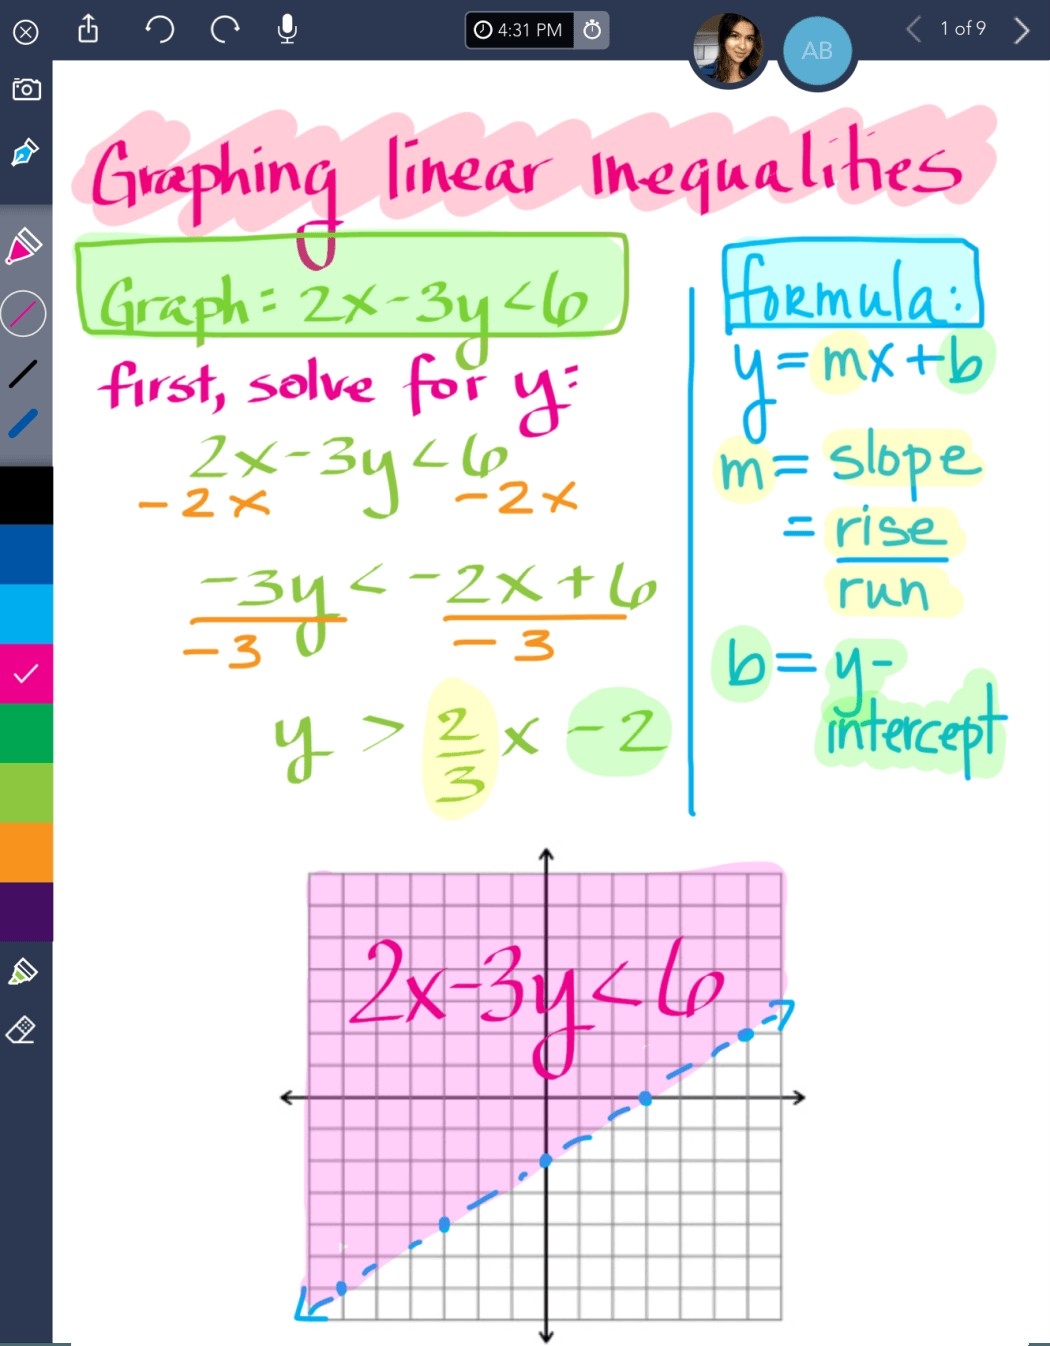 4:31 PM
AB
1 of 9
Graphing linear inequalities
Graph: 2x-3y<6
first, solve for y:
2x-3y<6
-2x -2x
-3y < -2x+6
-3 -3
y > 2/3 x -2
formula:
y=mx+b
m= slope
= rise
run
b= y-
intercept
2x-3y<6